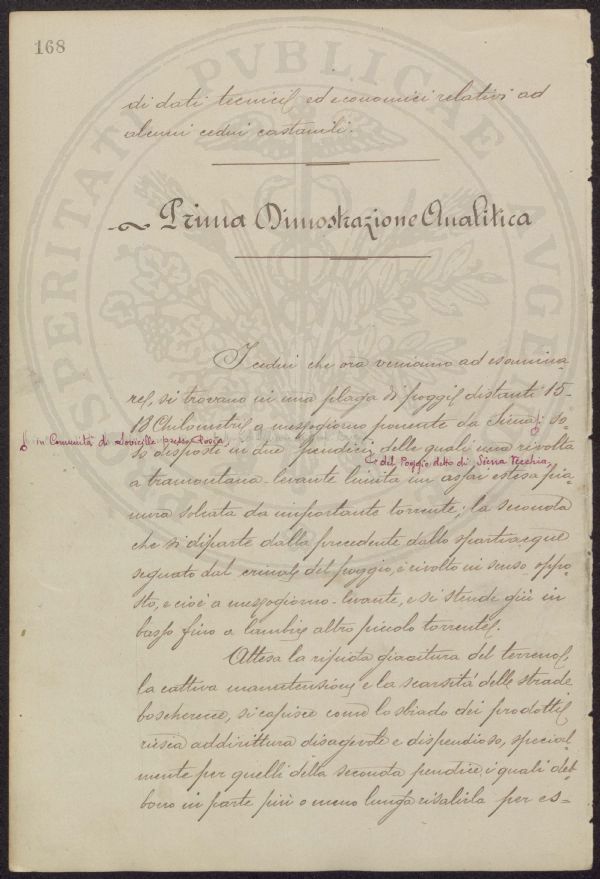 168
di dati tecnici ed economici relativi ad
alcuni cedui castanili.
Prima Dimostrazione Analitica
I cedui che ora veniamo ad esamina-
re, si trovano in una plaga di poggi distanti 15-
18 Chilometri a mezzogiorno ponente da Siena; so-
in Comunità di Sovicille presso Rosia,
no disposti in due pendici delle quali una rivolta
del Poggio detto di Siena Vecchia,
a tramontana-levante limita un assai estesa pia-
nura solcata da importante torrente; la seconda
che si diparte dalla precedente dallo spartiacque
segnato dal crinale del poggio, è rivolto in senso oppo-
sto, e cioè a mezzogiorno-levante, e si stende giù in
basso fino a lambire altro piccolo torrente.
Attesa la ripida giacitura del terreno,
la cattiva manutensione e la scarsità delle strade
boscherecce, si capisce come lo sbiado dei prodotti
riesca addirittura disagevole e dispendioso, special-
mente per quelli della seconda pendice, i quali deb-
bono in parte più o meno lunga risalirla per es-
PVBLICAE
AVGE
SPERITATI